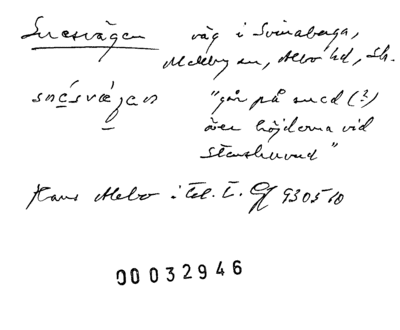 Snesvägen väg i Svinaberga,
Mellby sn, Albo hd, Sk.
snésvǽgen "går på sned (?)
över höjderna vid
Stenshuvud"
Hans Albo i tel. t. 930510
00032946